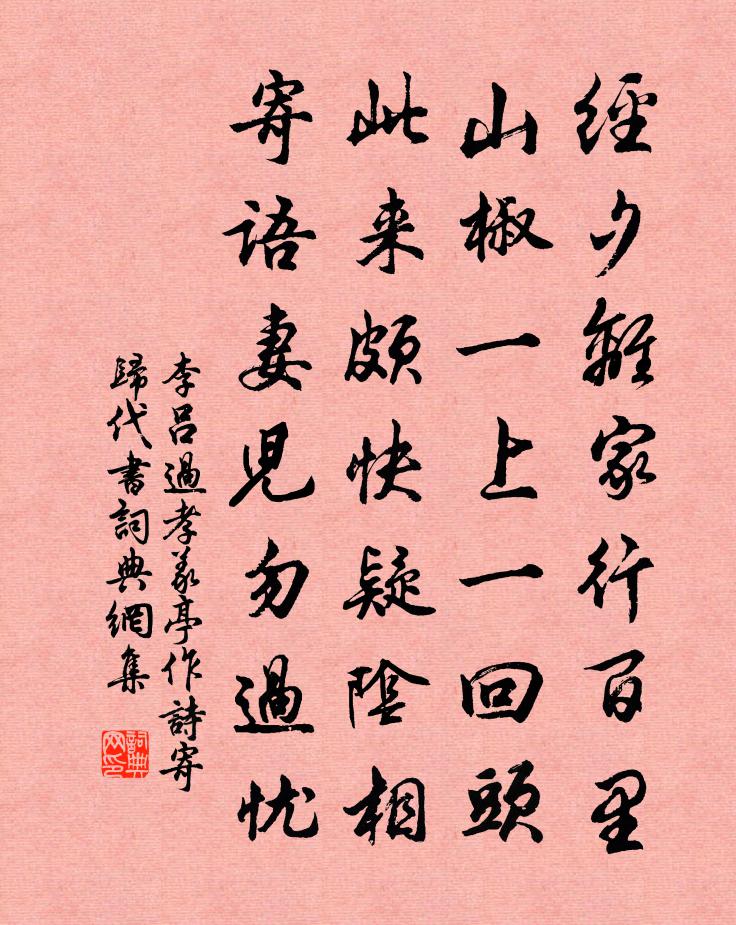 經夕離家行百里
山椒一上一回頭
此来頗快疑陰相
寄語妻児勿過忧
李呂過孝義亭作詩寄
歸代書詞典網集
詞典网印